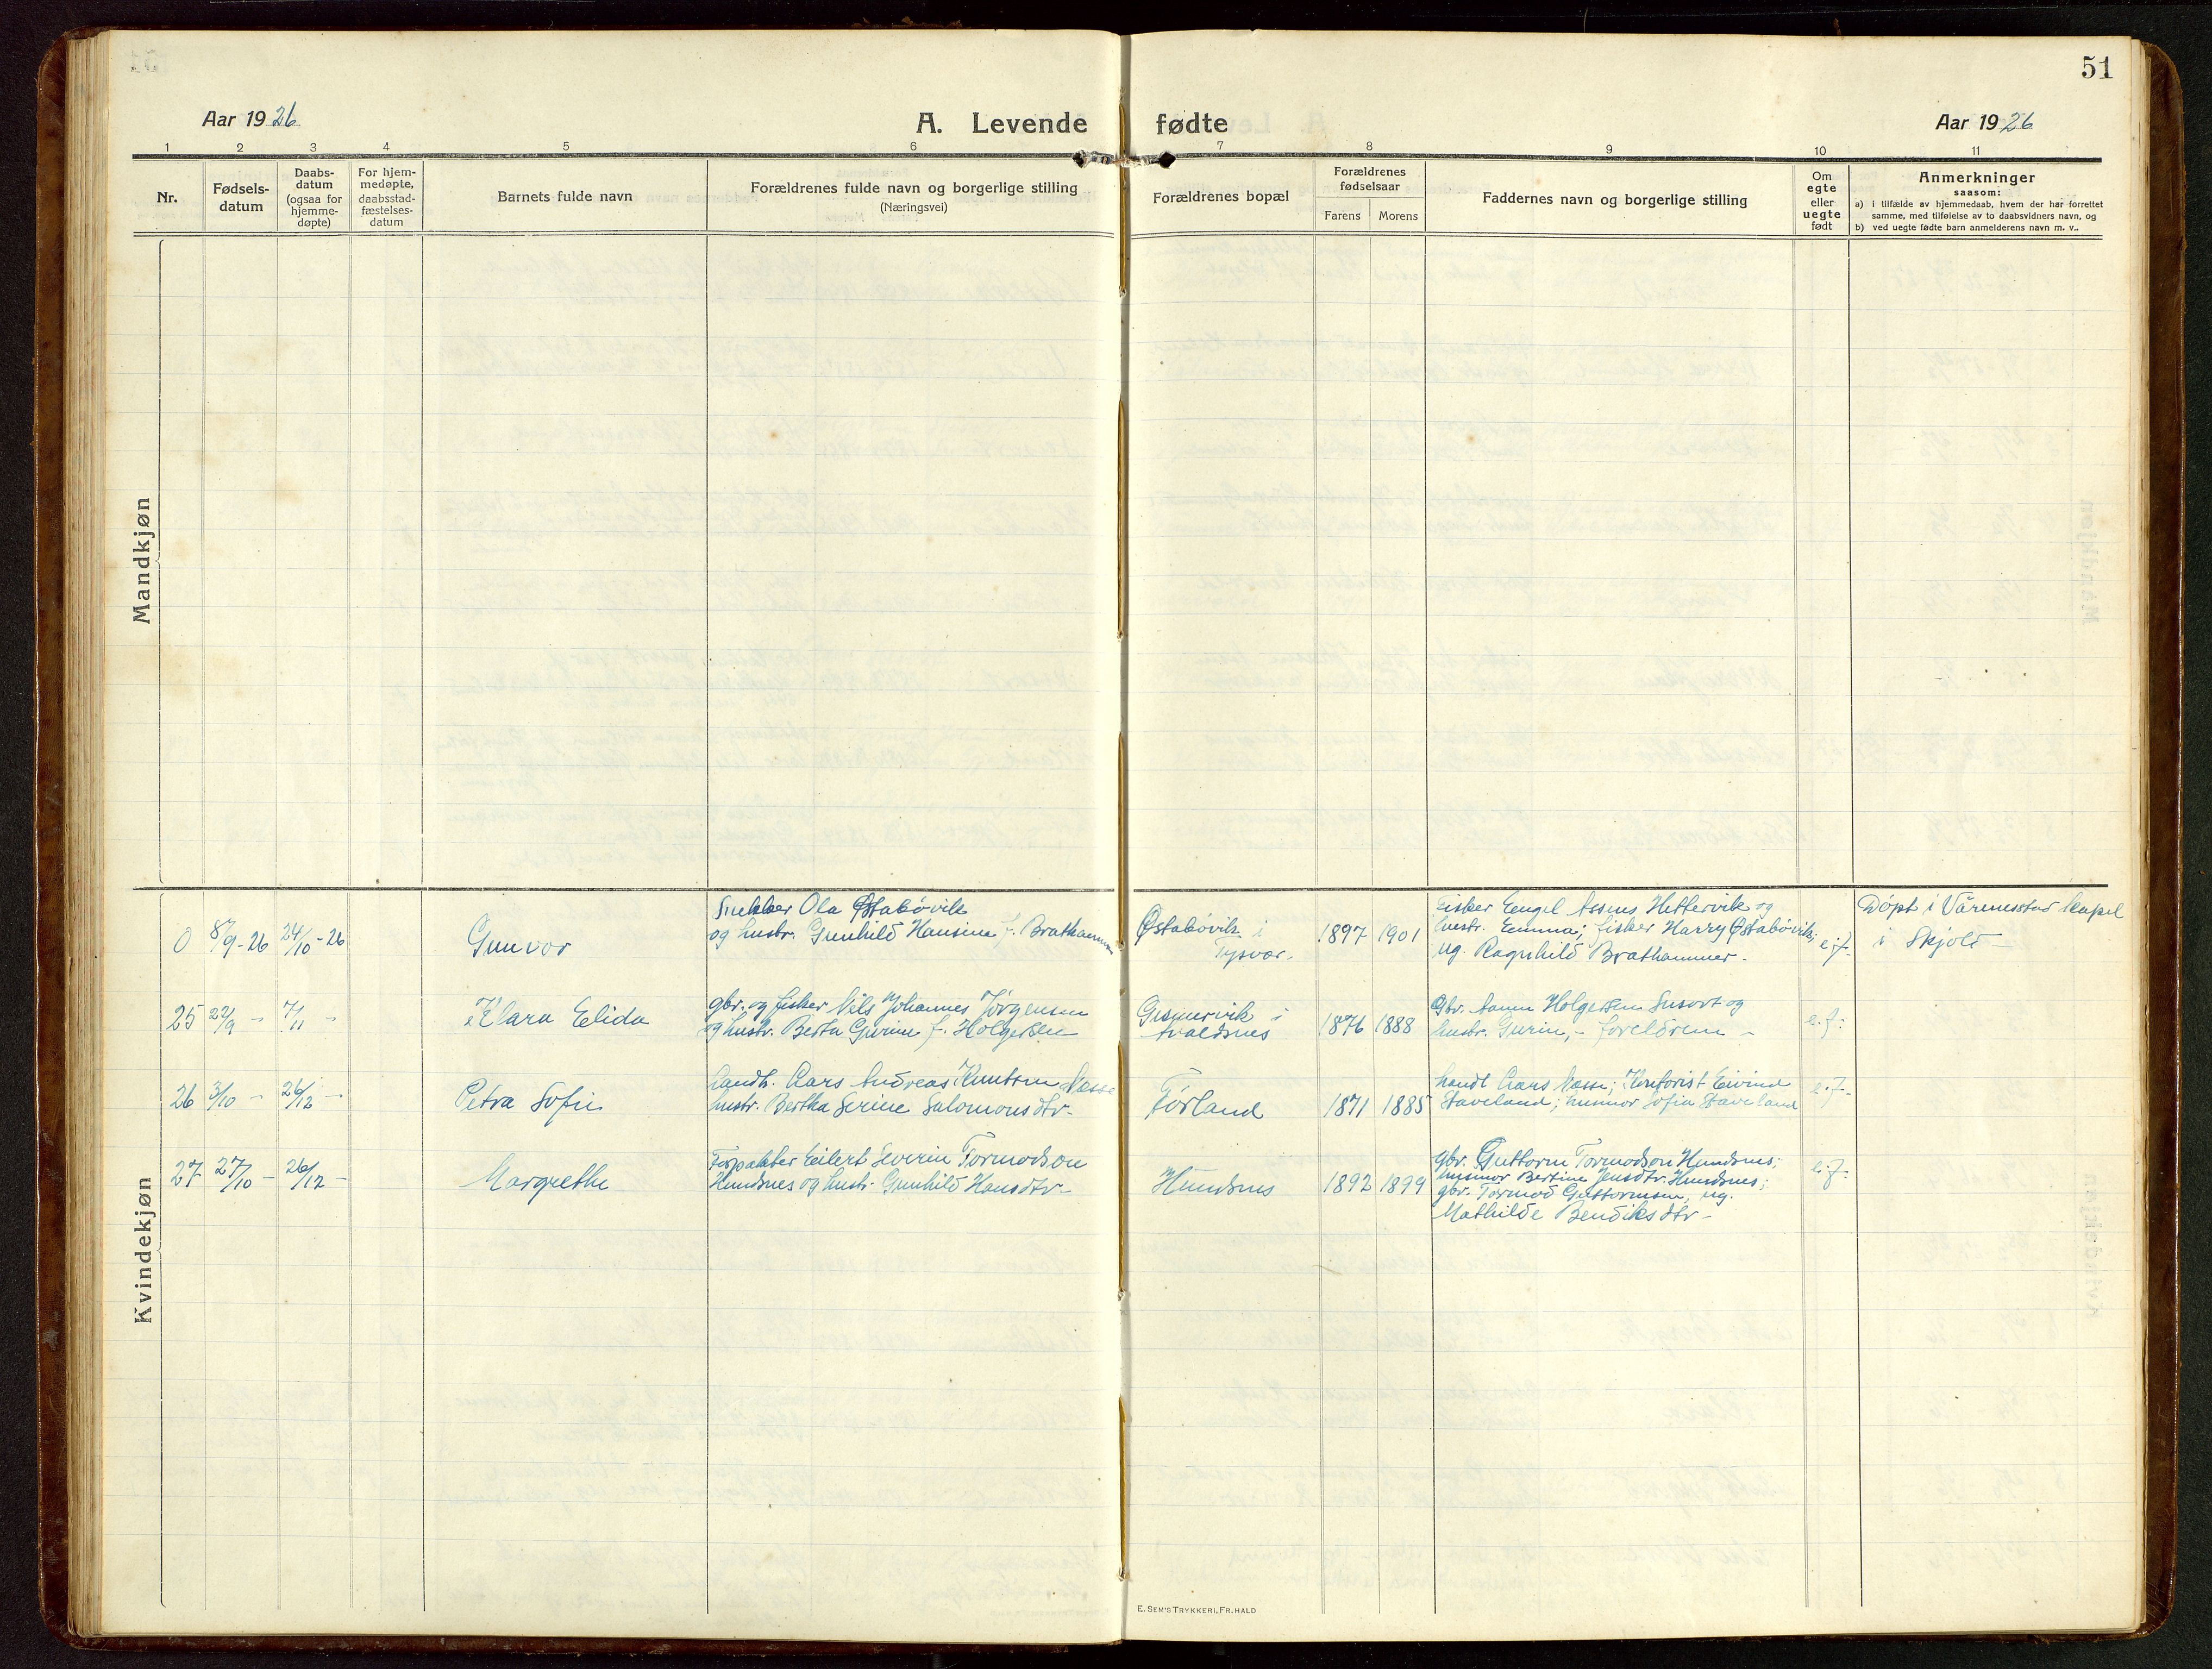 51
Aar 1926
A. Levende fødte
Aar 1926
1 2 3 4 5 6 7 8 9 10 11
Nr.
Fødsels-
datum
Daabs-
datum
(ogsaa for
hjemme-
døpte)
For hjem-
medøpte,
daabsstad-
fæstelses-
datum
Barnets fulde navn
Forældrenes fulde navn og borgerlige stilling
(Næringsvei)
Forældrenes bopæl
Forældrenes
fødselsaar
Farens
Morens
Faddernes navn og borgerlige stilling
Om
egte
eller
uegte
født
Anmerkninger
saasom:
a) i tilfælde av hjemmedaab, hvem der har forrettet
samme, med tilføielse av to daabsvidners navn, og
b) ved uegte fødte barn anmelderens navn m. v..
Mandkjøn
Kvindekjøn
0 8/9-26 24/10-26
Gunvor
Snekker Ola Østabövik
og hustr. Gunhild Hansine f. Brathammer
Østabövik i
Tysvær.
1897 1901
fisker Engel Hettervik og
hustr. Emma; fisker Harry Østabövik;
ug. Ragnhild Brathammer.
e.f.
Döpt i Vårmesstad kapel
i Skjold
25 22/9 - 7/11 -
Klara Elida
gbr. og fisker Nils Johannes Jørgensen
og hustr. Berta Gurine f. Holgersen
i
1876 1888
Gbr. Holgersen og
hustr. Gurine, - foreldrene -
e.f.
26 3/10 - 26/12 -
Petra Sofie
handl. Lars Andreas Knutsen Næsse
hustr. Bertha Serine Salomonsdtr.
Förland
1871 1885
handl Lars Næsse; Kontorist Eivind
Haveland; husmor Sofia Haveland
e.f.
27 27/10 - 26/12 -
Margrethe
Forpakter Eilert Severin Tormodson
Hundsnes og hustr. Gunhild Hansdtr.
Hundsnes
1892 1899
gbr. Guttorm Tormodson Hundsnes;
husmor Bertine Jensdtr. Hundsnes;
gbr. Tormod Guttormsen, ug.
Mathilde Bendiksdtr -
e.f.
E. SEM'S TRYKKERI, FR.HALD